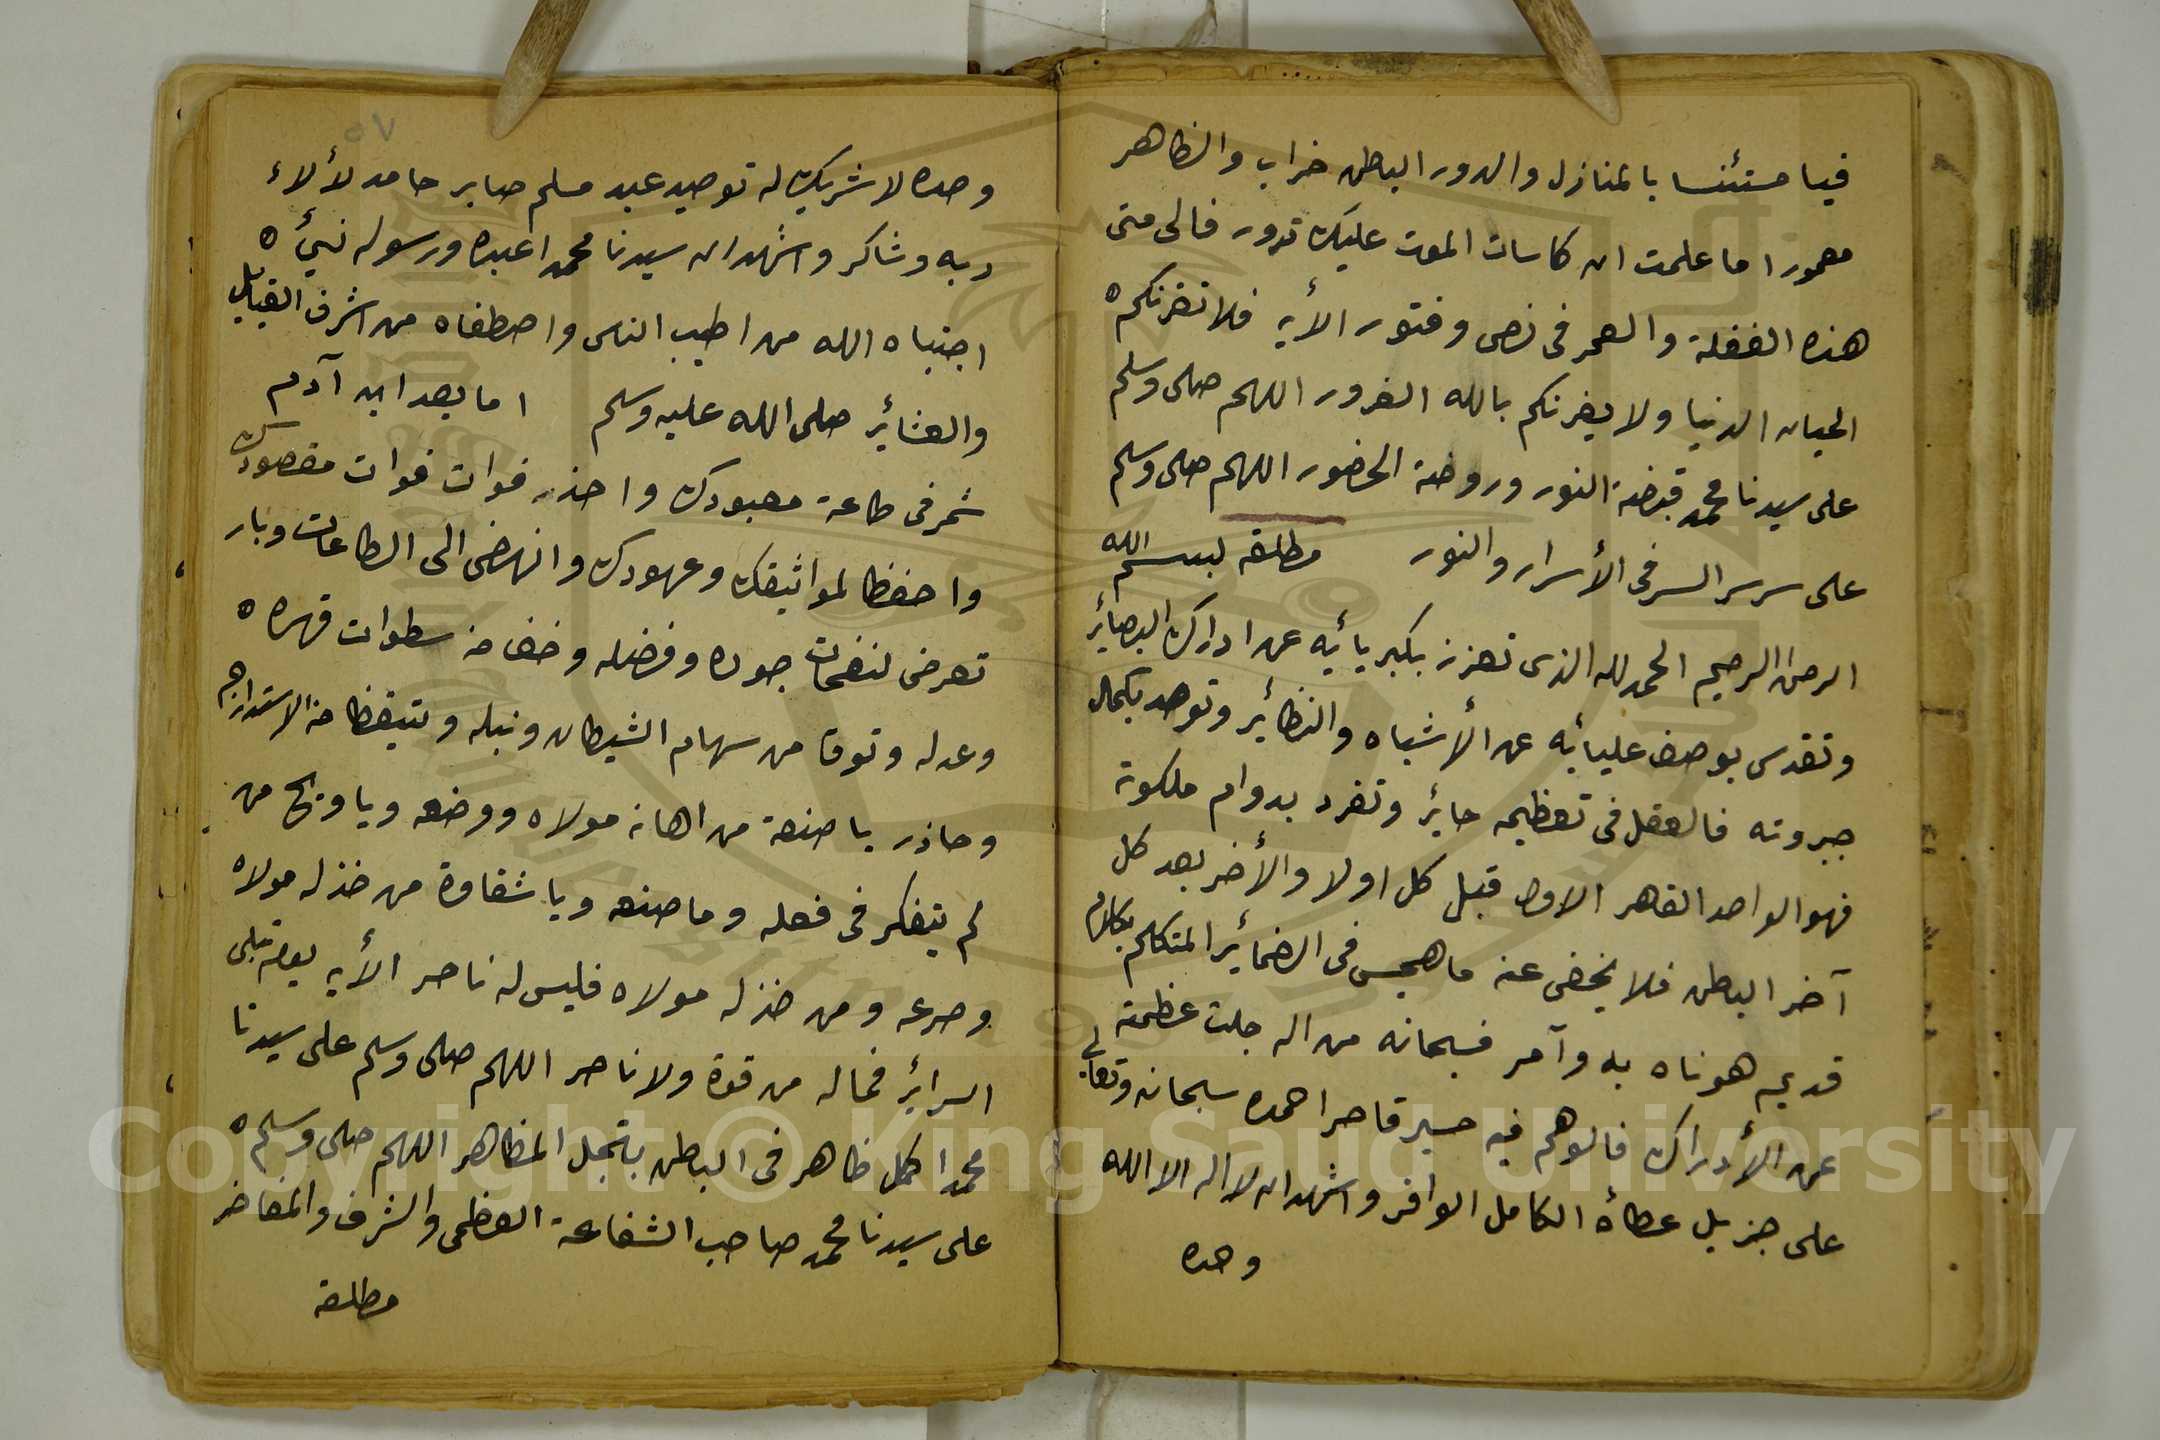 فيا مستئنسا بالمنازل والدور الباطن خراب والظاهر
معمورا ما علمت ان كاسات الموت عليك تدور فالى متى
هذه الغفلة والعمر فى نقص وفتور الأيه فلا تغرنكم
الحيات الدنيا ولا يغرنكم بالله الغرور اللهم صلى وسلم
على سيدنا محمد قبضة النور وروضة الحضور اللهم صلى وسلم
على سرسر السر فى الأسرار والنور مطلقه بسم الله
الرحمن الرحيم الحمد لله الذى تعزز بكبريائيه عن ادارك البصائر
وتقدس بوصف عليائه عن الأشباه والنظائر وتوحد بكمال
جبروته فالعقل فى تعظيمه حاير وتفرد بدوام ملكوته
فهو الواحد القاهر الاول قبل كل اولا والأخر بعد كل
آخر الباطن فلا يخفى عنه ما هجس فى الضمائر المتكلم بكلام
قديم هو ناه به وآمر فسبحانه من اله جلت عظمته
عن الأدراك فالوهم فيه حسير قاصر احمده سبحانه وتعالى
على جزيل عطأه الكامل الوافر واشهد ان لا اله الا الله
وحده
٥٧
وحده لا شريك له توحيد عبد مسلم صابر حامد لألاء
ربه وشاكر واشهد ان سيدنا محمدا عبده ورسوله نبئ
اجتباه الله من اطيب الناس واصطفاه من اشرف القبايل
والعشائر صلى الله عليه وسلم اما بعد ابن آدم
شمر فى طاعة معبودك واحذر فوات فوات مقصودك
واحفظ لمواثيقك وعهودك وانهض الى الطاعات وبادر
تعرض لنفحات جوده وفضله وخف من سطوات قهره
وعدله وتوقا من سهام الشيطان ونبله وتتيقظ من الاستدراجه
وحاذر يا ضيعة من اهانه مولاه ووضعه ويا ويح من
لم يتفكر فى فعله وما صنعه ويا شقاوة من خذله مولاه
وصرعه ومن خذله مولاه فليس له ناصر الأيه يوم تبلى
السرائر فماله من قوة ولا ناصر اللهم صلى وسلم على سيدنا
محمدا كمل ظاهر فى الباطن بتجمل المظاهر اللهم صلى وسلم
على سيدنا محمد صاحب الشفاعة العظمى والشرف والمفاخر
مطلقه
Copyright © King Saud University